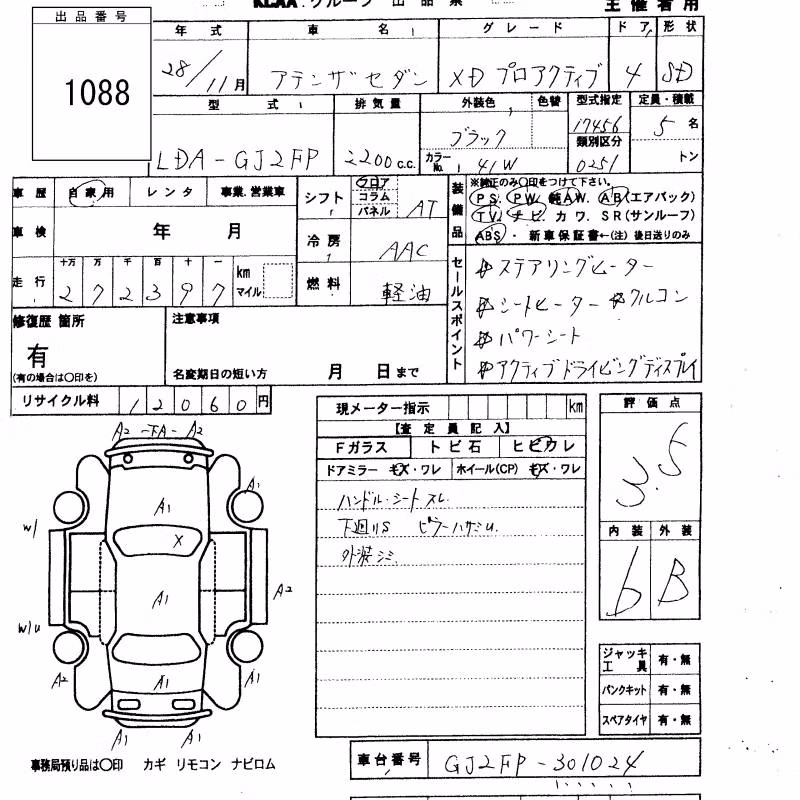 KCAA.グループ 出品票
主催者用
出品番号
1088
年式 車名 グレード ドア 形状
28/11月 アテンザセダン XD プロアクティブ 4 SD
型式 排気量 外装色 色替 型式指定 定員・積載
LDA-GJ2FP 2200 c.c. ブラック 17456 5名
カラーNo. 41W 類別区分 0251 トン
車歴 自家用 レンタ 事業.営業車
シフト フロア コラム パネル AT
装備品 ※純正のみ〇印をつけて下さい。
PS. PW. 純AW. AB(エアバック)
TV. ナビ カワ. SR(サンルーフ)
ABS・ 新車保証書←(注) 後日送りのみ
車検 年 月
冷房 AAC
走行 十万 万 千 百 十 一 km マイル
272397
燃料 軽油
セールスポイント
ステアリングヒーター
シートヒーター クルコン
パワーシート
アクティブドライビングディスプレイ
修復歴 箇所 注意事項
有
(有の場合は〇印を)
名変期日の短い方 月 日まで
リサイクル料 12060円
現メーター指示 km
【査定員記入】
Fガラス トビ石 ヒビワレ
ドアミラー キズ・ワレ ホイール(CP) キズ・ワレ
ハンドル・シートスレ
下廻りS ピラーハサミU
外装シミ
評価点
3.5
内装 外装
b B
A2 -下A- A2
A1 A1
W/ X
A1 A2
W/U
A2 A1 A1
A1 A1
ジャッキ工具 有・無
パンクキット 有・無
スペアタイヤ 有・無
事務局預り品は〇印 カギ リモコン ナビロム
車台番号 GJ2FP-301024